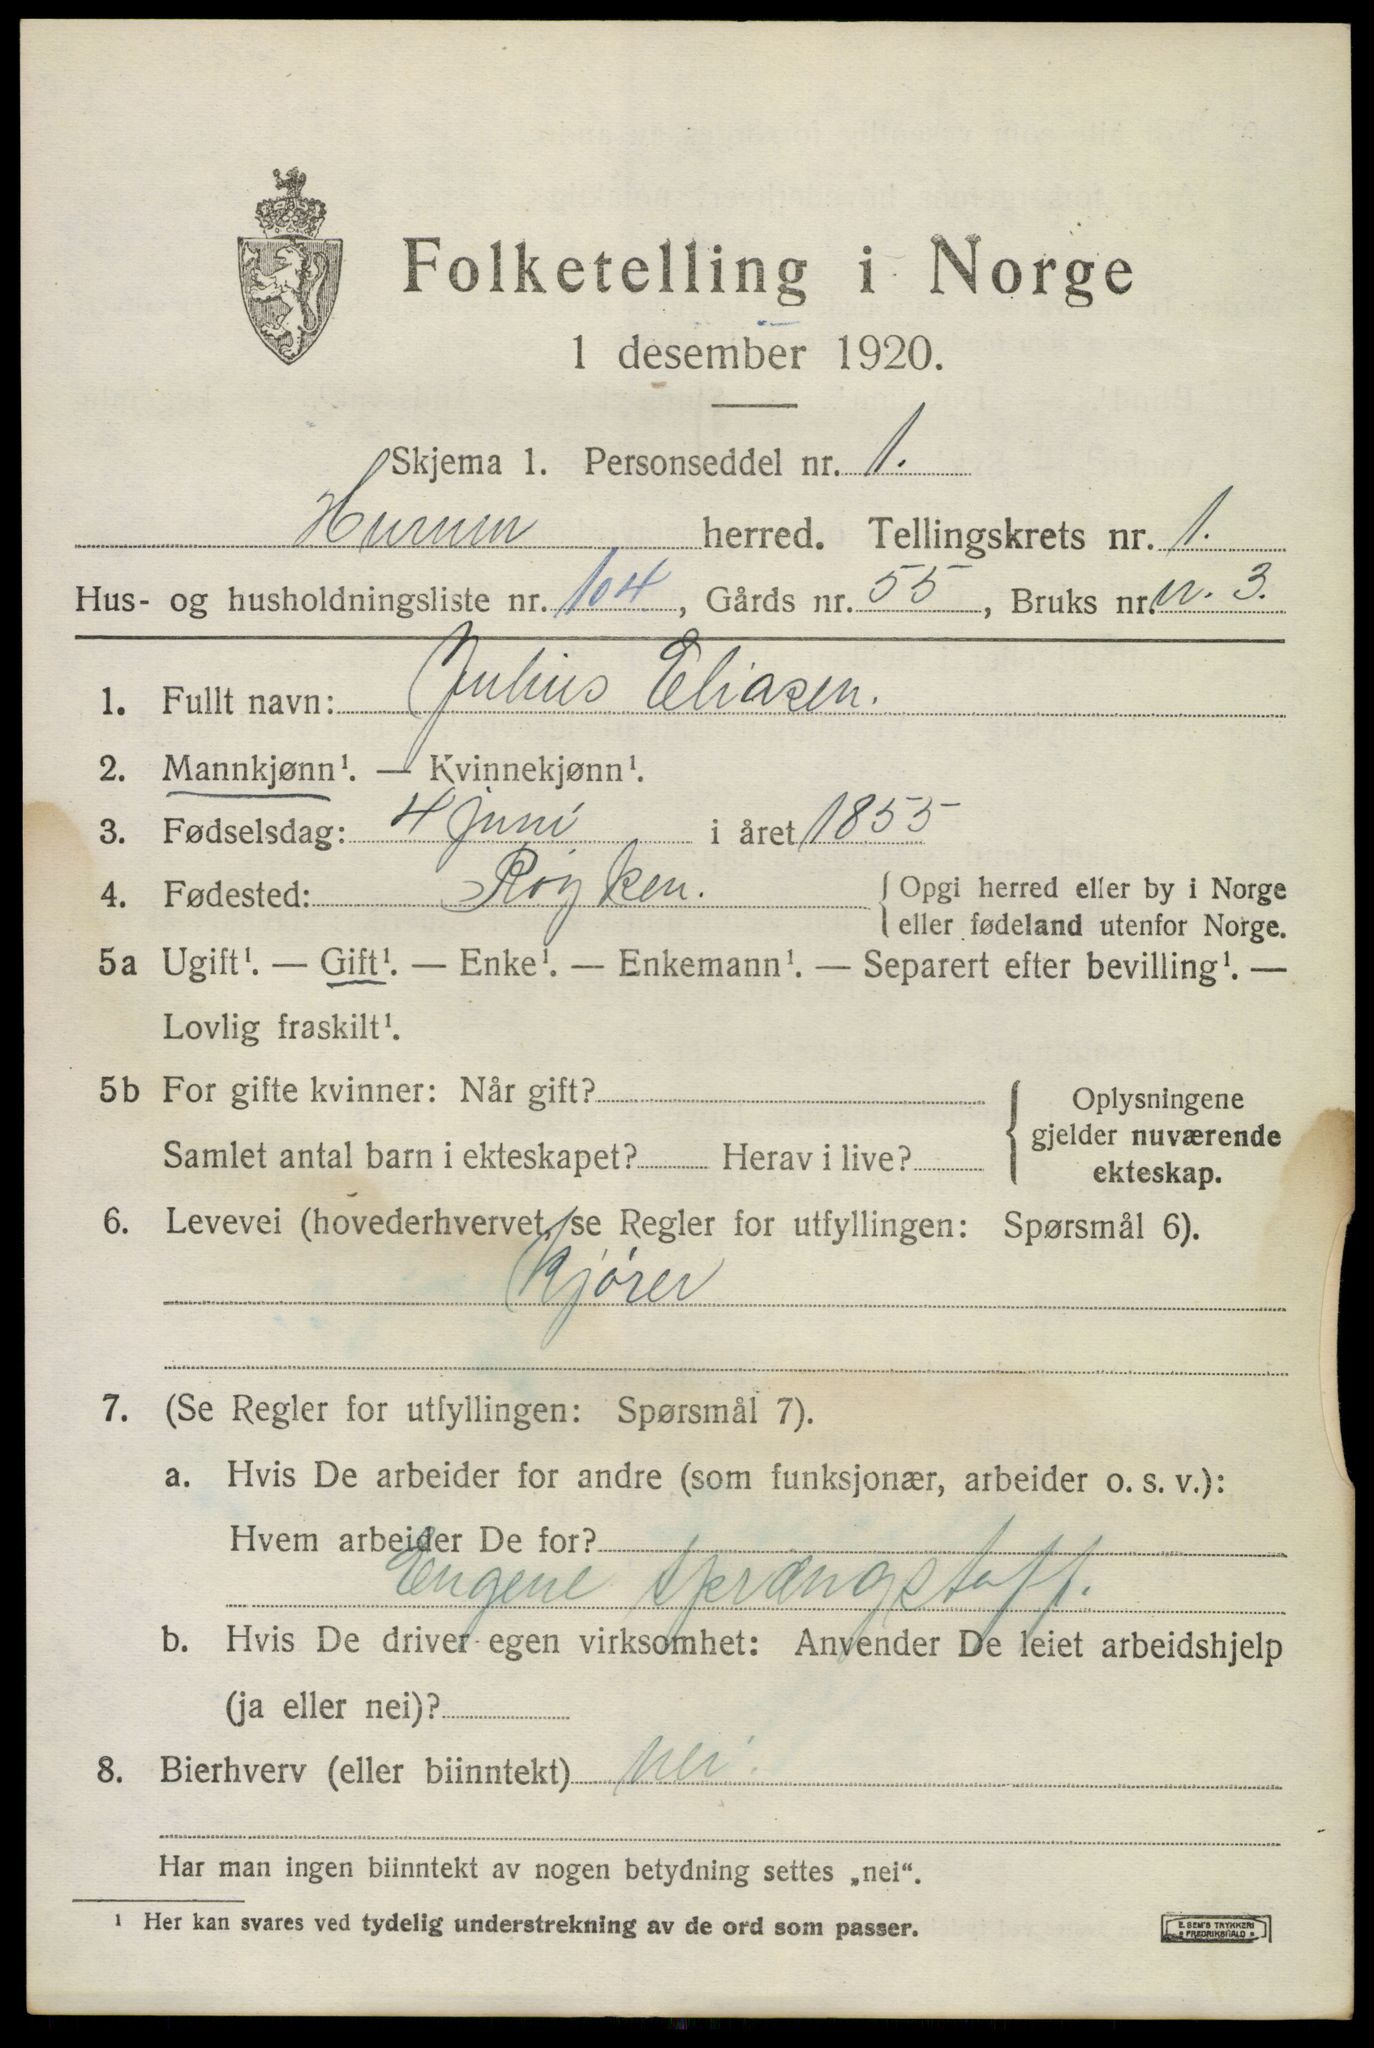 Folketelling i Norge
1 desember 1920.
Skjema 1. Personseddel nr. 1.
Hurum herred. Tellingskrets nr. 1.
Hus- og husholdningsliste nr. 104, Gårds nr. 55, Bruks nr. n. 3.
1. Fullt navn: Julius Eliasen.
2. Mannkjønn¹. — Kvinnekjønn¹.
3. Fødselsdag: 4 juni i året 1855
4. Fødested: Røyken. { Opgi herred eller by i Norge
eller fødeland utenfor Norge.
5a Ugift¹. — Gift¹. — Enke¹. — Enkemann¹. — Separert efter bevilling¹. —
Lovlig fraskilt¹.
5b For gifte kvinner: Når gift?
Samlet antal barn i ekteskapet? Herav i live?
{ Oplysningene
gjelder nuværende
ekteskap.
6. Levevei (hovederhvervet, se Regler for utfyllingen: Spørsmål 6).
Kjører
7. (Se Regler for utfyllingen: Spørsmål 7).
a. Hvis De arbeider for andre (som funksjonær, arbeider o. s. v.):
Hvem arbeider De for?
Engene sprængstoff.
b. Hvis De driver egen virksomhet: Anvender De leiet arbeidshjelp
(ja eller nei)?
8. Bierhverv (eller biinntekt) nei.
Har man ingen biinntekt av nogen betydning settes „nei“.
¹ Her kan svares ved tydelig understrekning av de ord som passer.
E. SEM'S TRYKKERI
FREDRIKSHALD